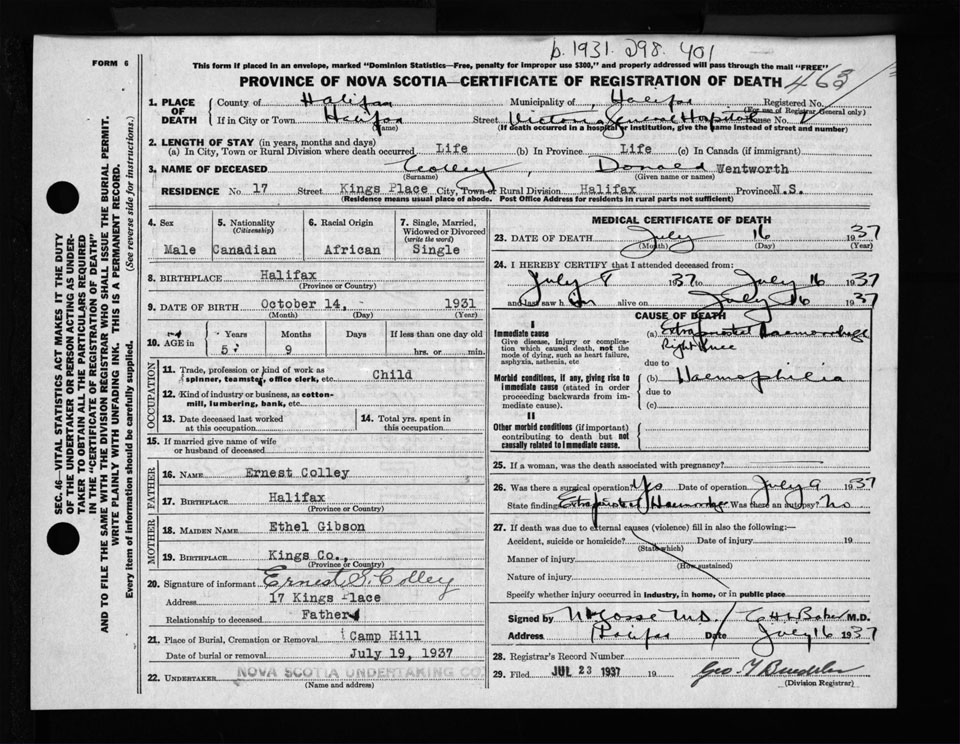 b. 1931. 298. 401
FORM 6
This form if placed in an envelope, marked "Dominion Statistics—Free, penalty for improper use $300," and properly addressed will pass through the mail "FREE"
PROVINCE OF NOVA SCOTIA—CERTIFICATE OF REGISTRATION OF DEATH
463
1. PLACE OF DEATH
County of Halifax Municipality of Halifax Registered No.
(For use of Registrar General only)
If in City or Town Halifax Street Victoria General Hospital House No.
(Name) (If death occurred in a hospital or institution, give the name instead of street and number)
2. LENGTH OF STAY (in years, months and days)
(a) In City, Town or Rural Division where death occurred Life (b) In Province Life (c) In Canada (if immigrant)
3. NAME OF DECEASED Colley, Donald Wentworth
(Surname) (Given name or names)
RESIDENCE No. 17 Street Kings Place City, Town or Rural Division Halifax Province N.S.
(Residence means usual place of abode. Post Office Address for residents in rural parts not sufficient)
4. Sex Male
5. Nationality (Citizenship) Canadian
6. Racial Origin African
7. Single, Married, Widowed or Divorced (write the word) Single
8. BIRTHPLACE Halifax
(Province or Country)
9. DATE OF BIRTH October 14, 1931
(Month) (Day) (Year)
10. AGE in Years 5 Months 9 Days If less than one day old hrs. or min.
OCCUPATION
11. Trade, profession or kind of work as spinner, teamster, office clerk, etc. Child
12. Kind of industry or business, as cotton-mill, lumbering, bank, etc.
13. Date deceased last worked at this occupation
14. Total yrs. spent in this occupation
15. If married give name of wife or husband of deceased
FATHER
16. NAME Ernest Colley
17. BIRTHPLACE Halifax
(Province or Country)
MOTHER
18. MAIDEN NAME Ethel Gibson
19. BIRTHPLACE Kings Co.,
(Province or Country)
20. Signature of informant Ernest G. Colley
Address 17 Kings Place
Relationship to deceased Father
21. Place of Burial, Cremation or Removal Camp Hill
Date of burial or removal July 19, 1937
22. UNDERTAKER NOVA SCOTIA UNDERTAKING CO.
(Name and address)
MEDICAL CERTIFICATE OF DEATH
23. DATE OF DEATH July 16 1937
(Month) (Day) (Year)
24. I HEREBY CERTIFY that I attended deceased from:
July 8 1937 to July 16 1937
and last saw him alive on July 16 1937
CAUSE OF DEATH
I
Immediate cause
Give disease, injury or complication which caused death, not the mode of dying, such as heart failure, asphyxia, asthenia, etc
(a) Haemorrhage
Right knee
due to
Morbid conditions, if any, giving rise to immediate cause (stated in order proceeding backwards from immediate cause).
(b) Haemophilia
due to
(c)
II
Other morbid conditions (if important) contributing to death but not causally related to immediate cause.
25. If a woman, was the death associated with pregnancy?
26. Was there a surgical operation? Yes Date of operation July 9 1937
State findings Haemorrhage Was there an autopsy? No
27. If death was due to external causes (violence) fill in also the following:—
Accident, suicide or homicide? Date of injury 19
(State which)
Manner of injury
(How sustained)
Nature of injury
Specify whether injury occurred in industry, in home, or in public place
Signed by M.D.
Address Halifax Date July 16 1937
28. Registrar's Record Number
29. Filed JUL 23 1937 19
(Division Registrar)
SEC. 46—VITAL STATISTICS ACT MAKES IT THE DUTY OF THE UNDERTAKER OR PERSON ACTING AS UNDERTAKER TO OBTAIN ALL THE PARTICULARS REQUIRED IN THE "CERTIFICATE OF REGISTRATION OF DEATH"
AND TO FILE THE SAME WITH THE DIVISION REGISTRAR WHO SHALL ISSUE THE BURIAL PERMIT.
WRITE PLAINLY WITH UNFADING INK. THIS IS A PERMANENT RECORD.
Every item of information should be carefully supplied. (See reverse side for instructions.)